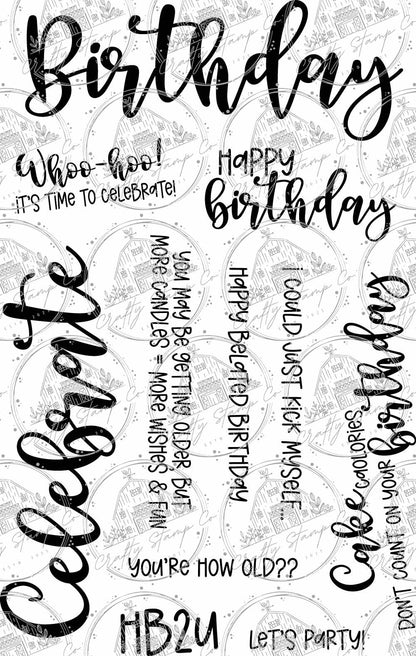 Birthday
Whoo-hoo!
IT'S TIME TO CELEBRATE!
HAPPY
birthday
Celebrate
YOU MAY BE GETTING OLDER BUT
MORE CANDLES = MORE WISHES & FUN
HAPPY BELATED BIRTHDAY
I COULD JUST KICK MYSELF...
Cake CALORIES
DON'T COUNT ON YOUR birthday
YOU'RE HOW OLD??
HB2U
LET'S PARTY!